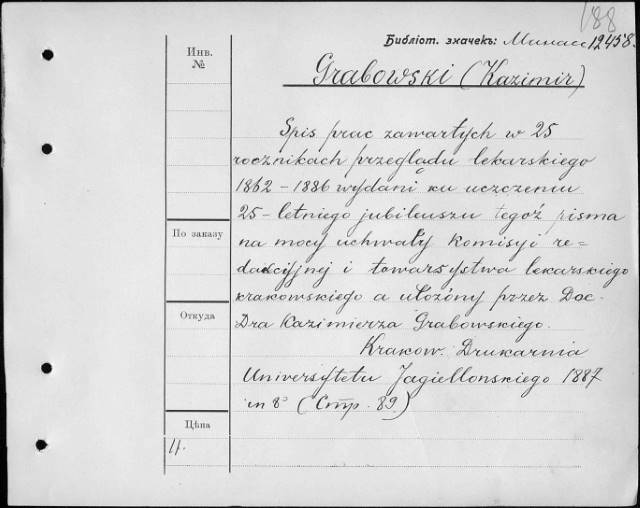 188
Библіот. значекъ: Минас 12458.
Инв.
№
Grabowski (Kazimir)
Spis prac zawartych w 25
rocznikach przeglądu lekarskiego
1862 – 1886 wydani ku uczczeniu
25 - letniego jubileuszu tegoż pisma
По заказу
na mocy uchwały komisyi re=
dakcyjnej i towarsystwa lekarskiego
krakowskiego a ułożóny przez Doc.
Откуда
Dra Kazimierza Grabowskiego.
Krakow. Drukarnia
Universytetu Jagiellonskiego 1887
in 8° (Стр. 89.)
Цѣна